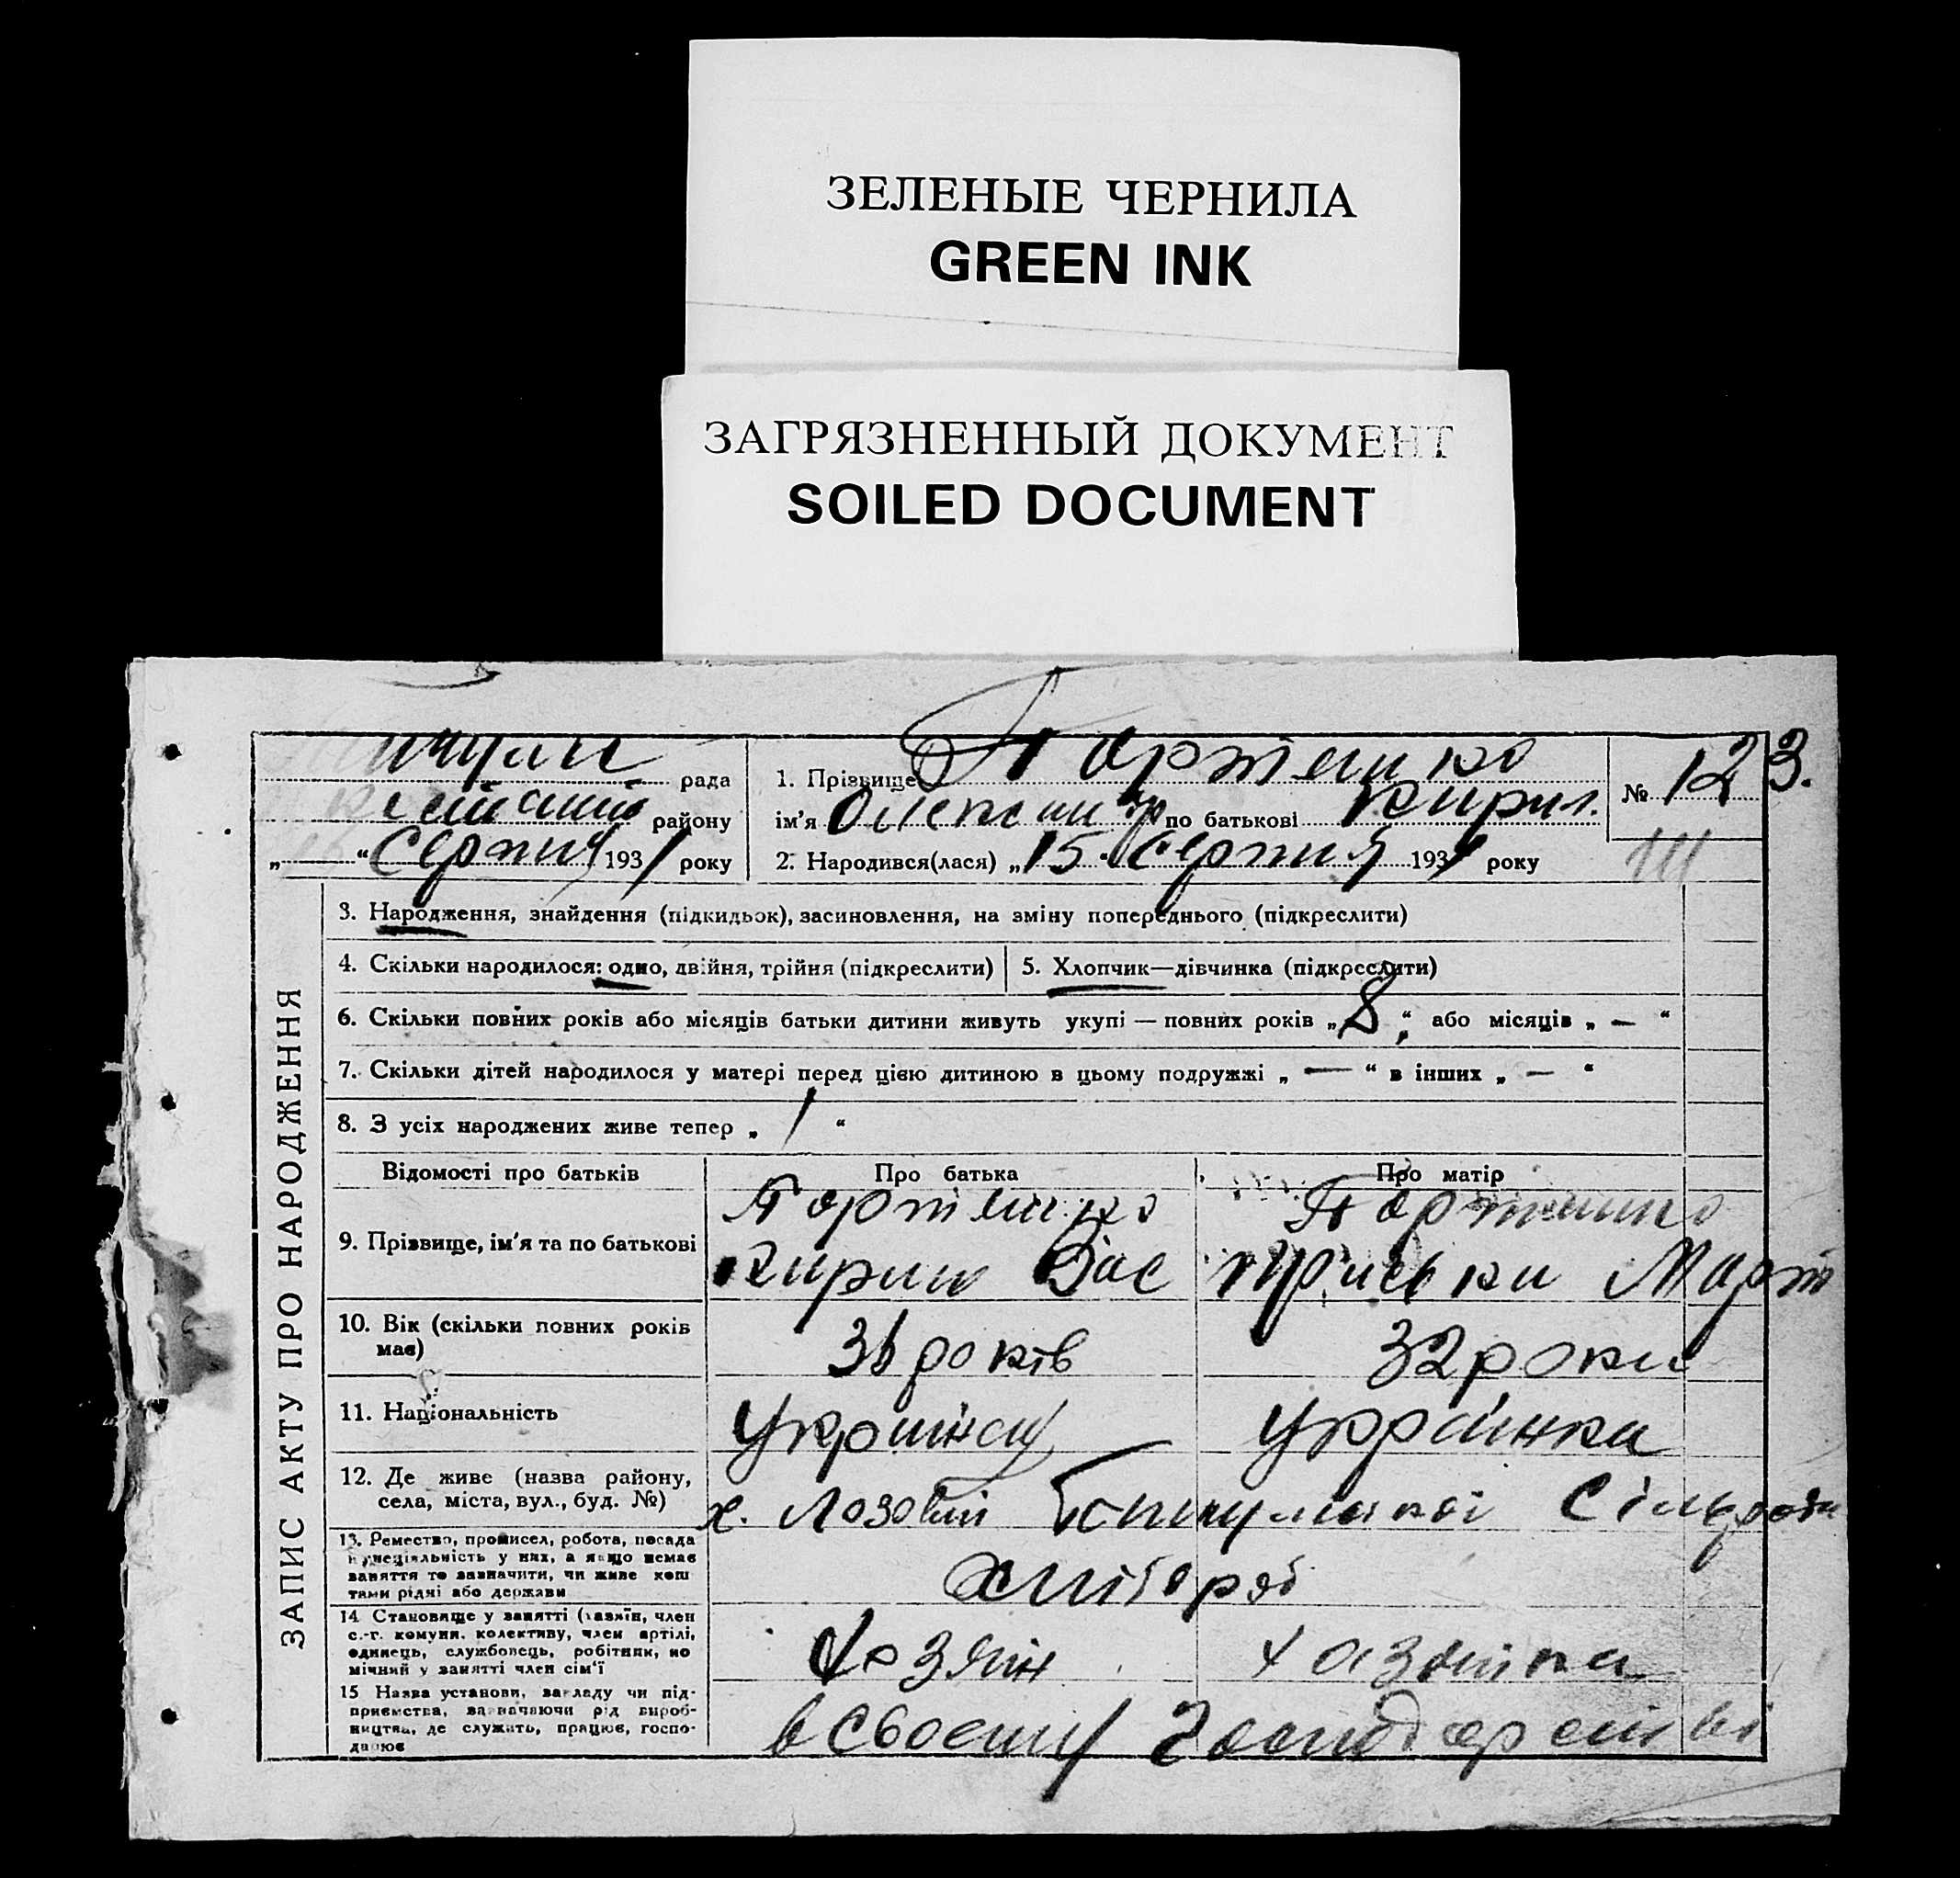 ЗЕЛЕНЫЕ ЧЕРНИЛА
GREEN INK
ЗАГРЯЗНЕННЫЙ ДОКУМЕНТ
SOILED DOCUMENT
ЗАПИС АКТУ ПРО НАРОДЖЕННЯ
рада
району
„ “ Серпня 1931 року
1. Прізвище Портенко
ім'я Олександр по батькові Кирил.
2. Народився(лася) „15“ Серпня 1931 року
№ 123.
3. Народження, знайдення (підкидьок), засиновлення, на зміну попереднього (підкреслити)
4. Скільки народилося: одно, двійня, трійня (підкреслити)
5. Хлопчик—дівчинка (підкреслити)
6. Скільки повних років або місяців батьки дитини живуть укупі — повних років „8“, або місяців „ — “
7. Скільки дітей народилося у матері перед цією дитиною в цьому подружжі „ — “ в інших „ — “
8. З усіх народжених живе тепер „ 1 “
Відомості про батьків Про батька Про матір
9. Прізвище, ім'я та по батькові
Портенко Портенко
Кирило Вас Пріська Март
10. Вік (скільки повних років має)
36 років 32 роки
11. Національність
Українец Українка
12. Де живе (назва району, села, міста, вул., буд. №)
х. Лозовий Сільради
13. Ремество, промисел, робота, посада
и спеціяльність у них, а якщо немає
заняття то зазначити, чи живе кош
тами рідні або держави
хлібороб
14 Становище у занятті (хазяїн, член
с.-г. комуни, колективу, член артілі,
одинець, службовець, робітник, по
мічний у занятті член сім'ї
Хозяїн Хазяйка
15 Назва установи, закладу чи під-
приємства, зазначаючи рід вироб-
ництва, де служить, працює, госпо-
дарює
в своєму Господарстві